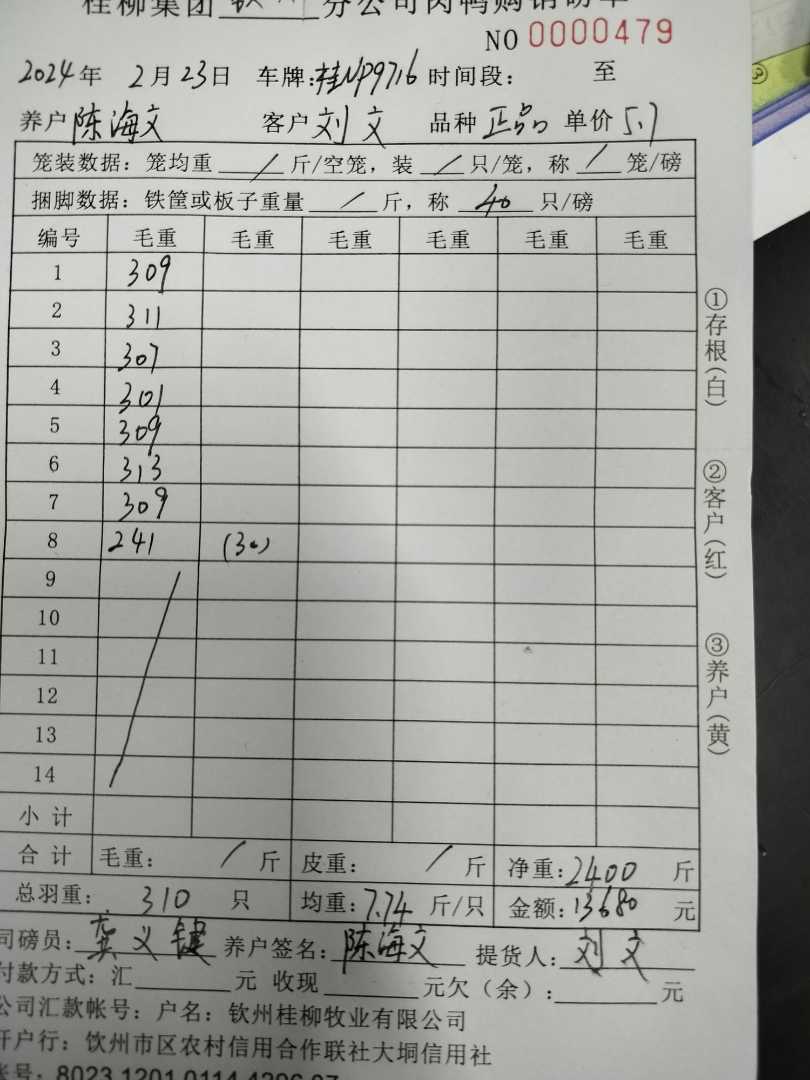 桂柳集团 分公司肉鸭购销磅单
NO 0000479
2024年 2月23日 车牌:桂NP9716 时间段: 至
养户 陈海文 客户 刘文 品种 正品 单价 5.7
笼装数据: 笼均重 / 斤/空笼, 装 / 只/笼, 称 / 笼/磅
捆脚数据: 铁筐或板子重量 / 斤, 称 40 只/磅
编号 毛重 毛重 毛重 毛重 毛重 毛重
1 309
2 311
3 307
4 301
5 309
6 313
7 309
8 241 (30)
9
10
11
12
13
14
小计
合计 毛重: / 斤 皮重: / 斤 净重:2400 斤
总羽重: 310 只 均重:7.74 斤/只 金额:13680 元
司磅员: 龚义键 养户签名: 陈海文 提货人: 刘文
付款方式: 汇 元 收现 元欠(余): 元
公司汇款帐号: 户名: 钦州桂柳牧业有限公司
开户行: 钦州市区农村信用合作联社大垌信用社
帐号: 8023 1201 0114 4296 07
①存根(白)
②客户(红)
③养户(黄)